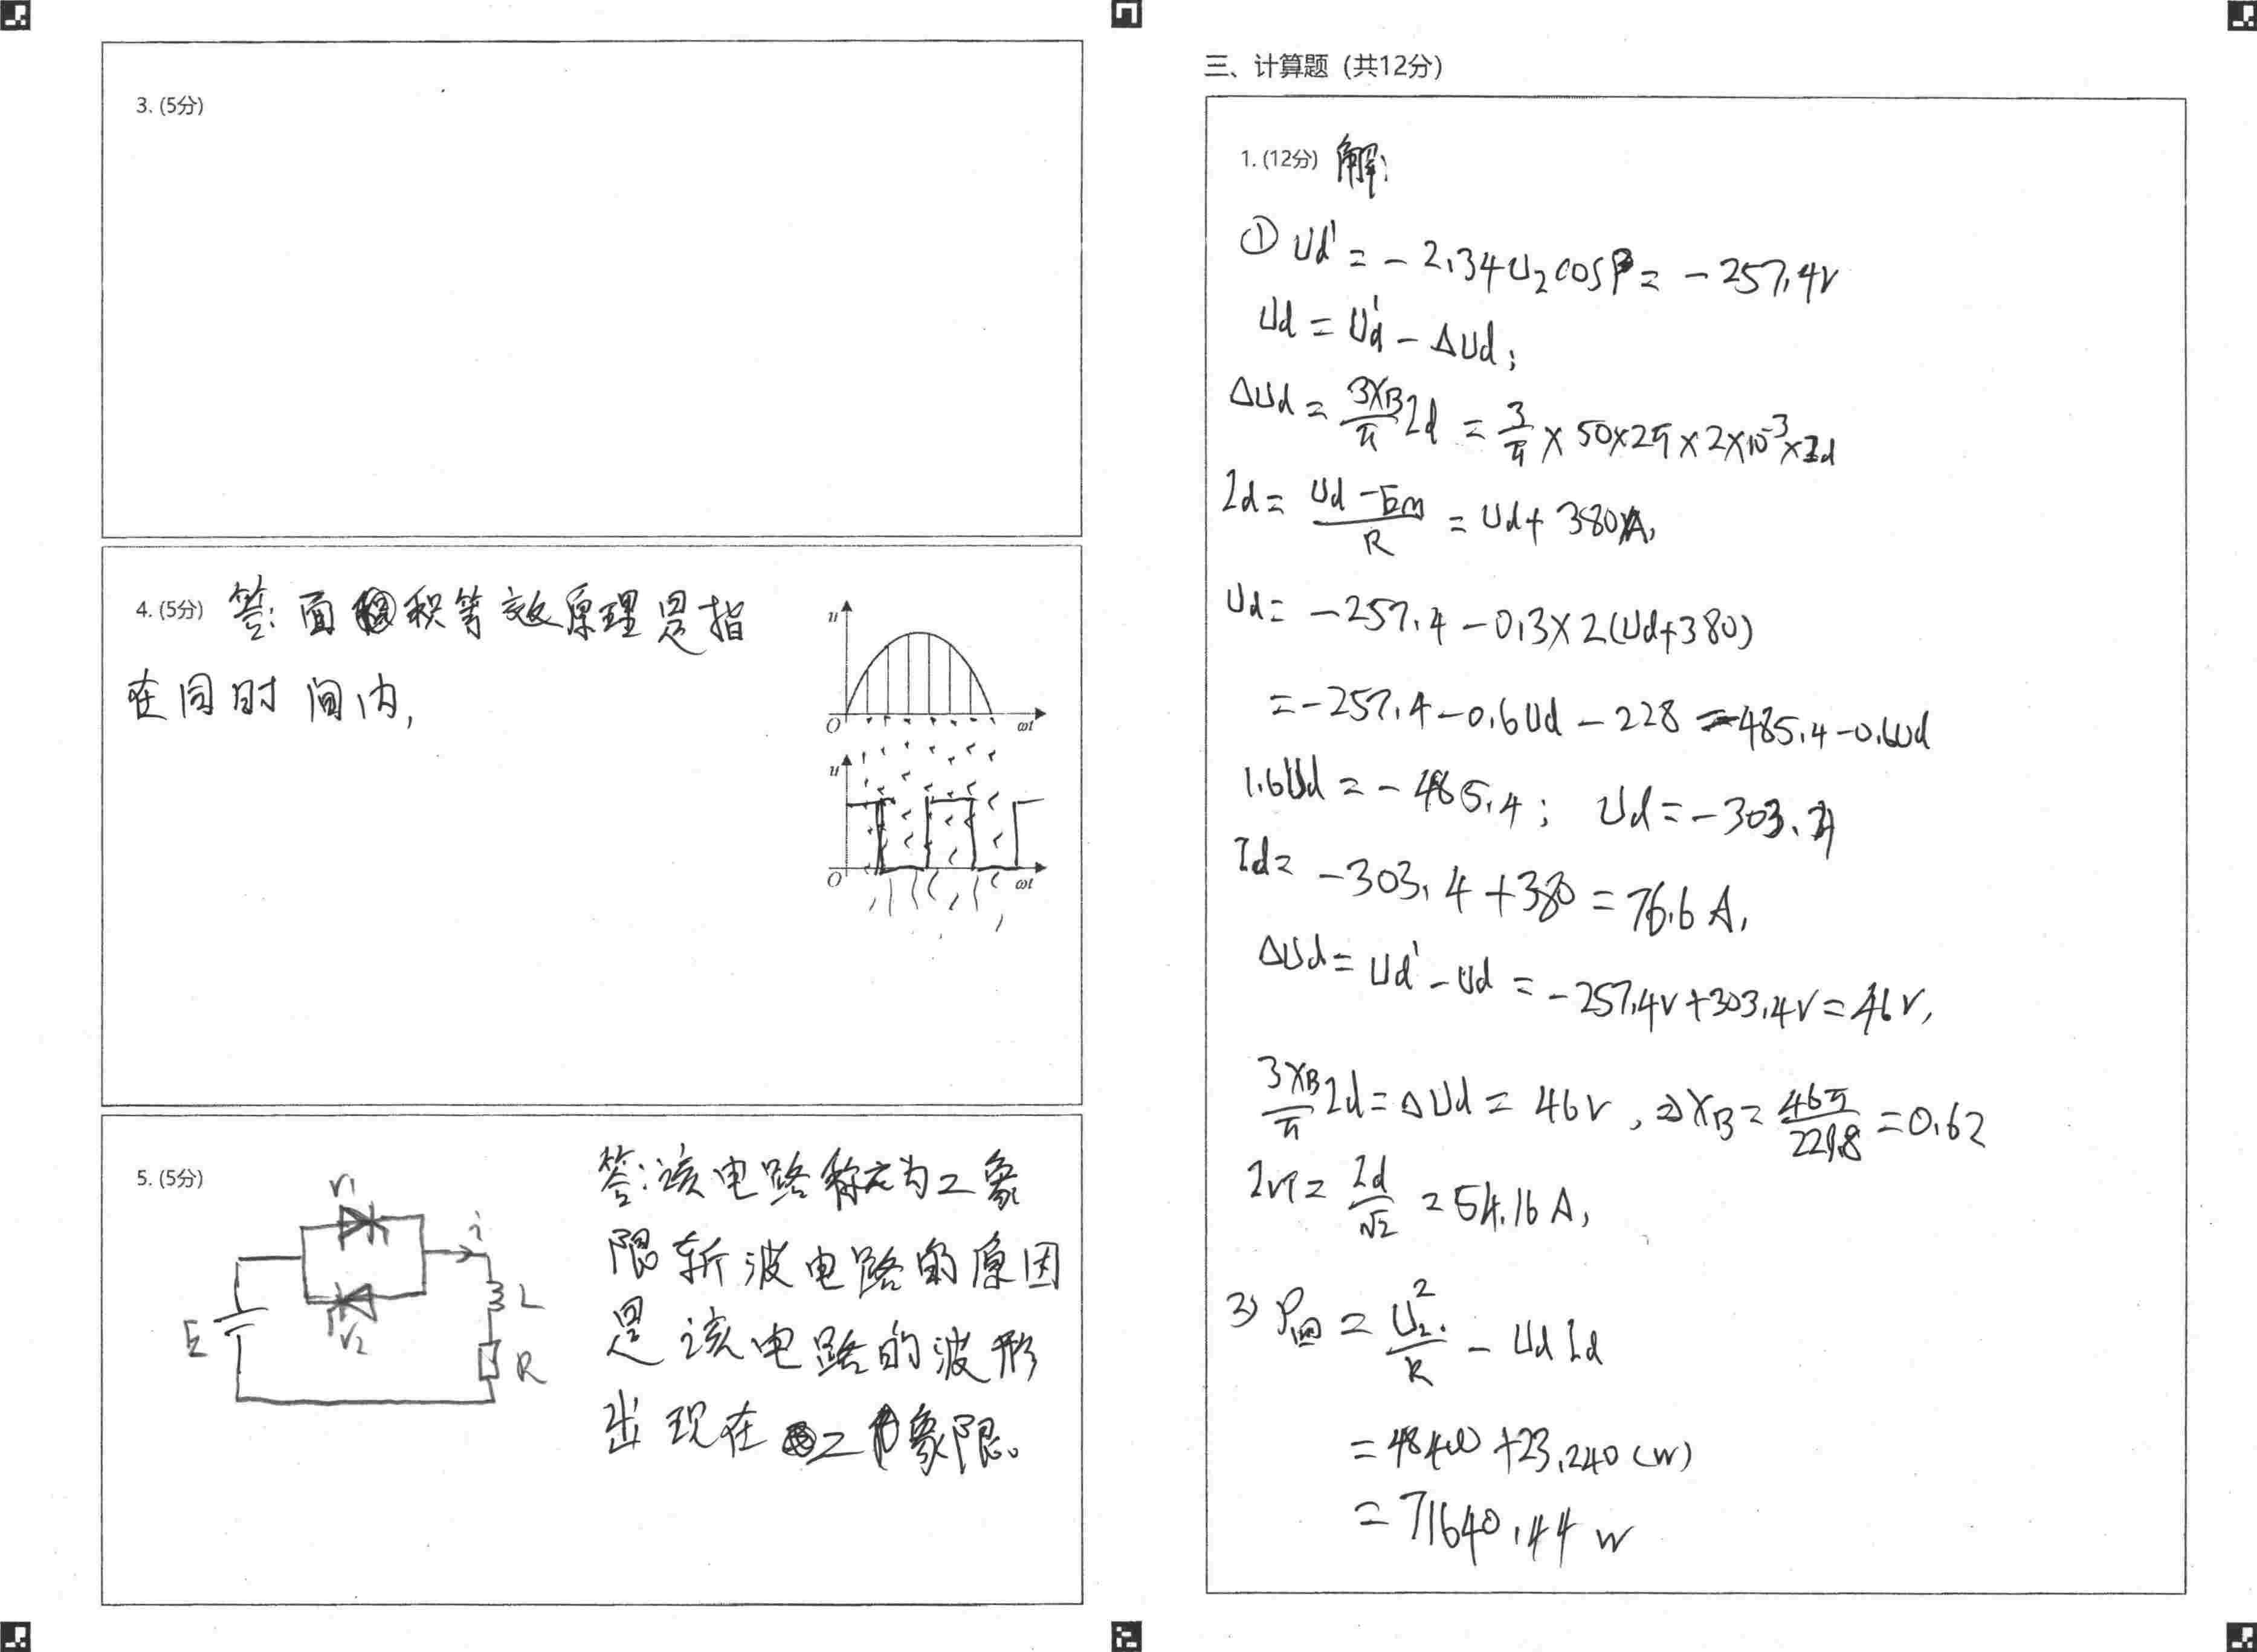 3. (5分)
4. (5分) 答:面积等效原理是指
在同时间内,
u
O
ωt
u
O
ωt
5. (5分)
V1
i
L
E
V2
R
答:该电路称为二象
限斩波电路的原因
是该电路的波形
出现在二个象限。
三、计算题 (共12分)
1. (12分) 解:
① Ud' = -2.34U₂cosβ = -257.4V
Ud = Ud' - ΔUd;
ΔUd = 3XB/π Id = 3/π × 50×2π×2×10⁻³×Id
Id = (Ud - Em)/R = Ud + 380A,
Ud = -257.4 - 0.3×2(Ud+380)
= -257.4 - 0.6Ud - 228 = -485.4 - 0.6Ud
1.6Ud = -485.4; Ud = -303.4
Id = -303.4 + 380 = 76.6 A,
ΔUd = Ud' - Ud = -257.4V + 303.4V = 46V,
3XB/π Id = ΔUd = 46V, ⇒ XB = 46π/229.8 = 0.62
IVT = Id/√2 = 54.16 A,
3) P = U₂²/R - UdId
= 48400 + 23.240 (W)
= 71640.44 W